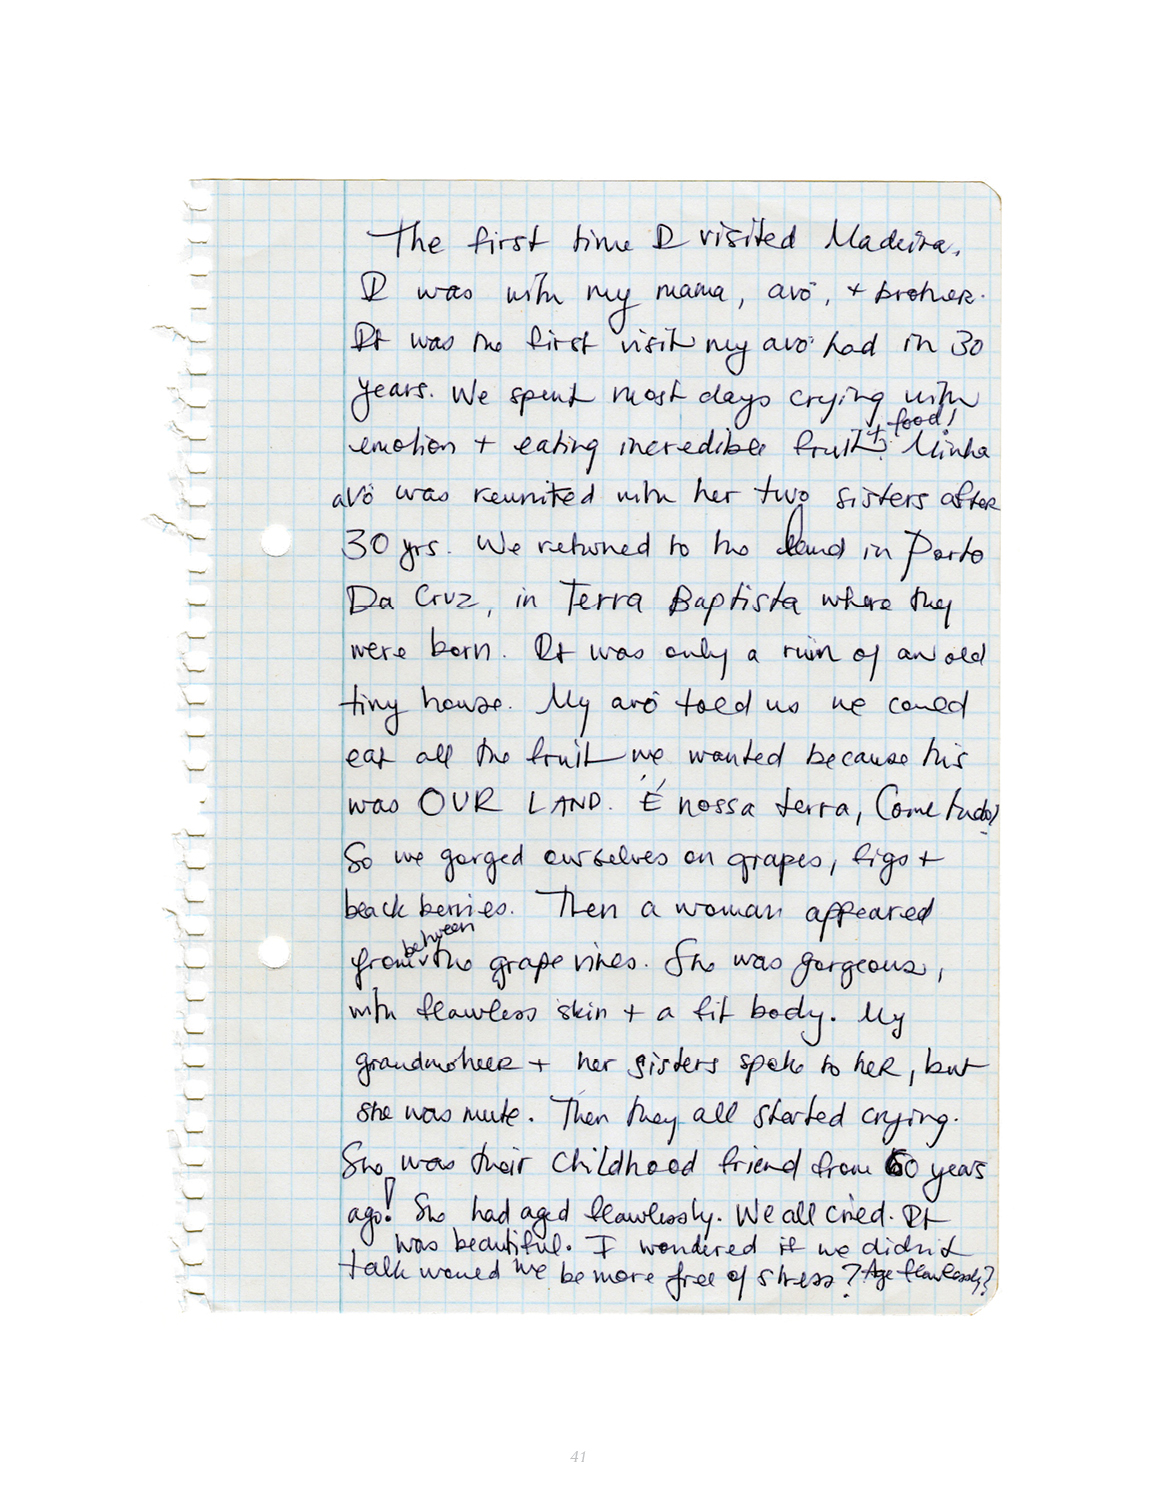 The first time I visited Madeira.
I was with my mama, avó, + brother.
It was the first visit my avó had in 30
years. We spent most days crying with
emotion + eating incredible fruit + food! Minha
avó was reunited with her two sisters after
30 yrs. We returned to the land in Porto
Da Cruz, in Terra Baptista where they
were born. It was only a ruin of an old
tiny house. My avó told us we could
eat all the fruit we wanted because this
was OUR LAND. É nossa terra, Come tudo!
So we gorged ourselves on grapes, figs +
black berries. Then a woman appeared
from between the grape vines. She was gorgeous,
with flawless skin + a fit body. My
grandmother + her sisters spoke to her, but
she was mute. Then they all started crying.
She was their childhood friend from 60 years
ago! She had aged flawlessly. We all cried. It
was beautiful. I wondered if we didn't
talk would we be more free of stress? Age flawlessly?
41